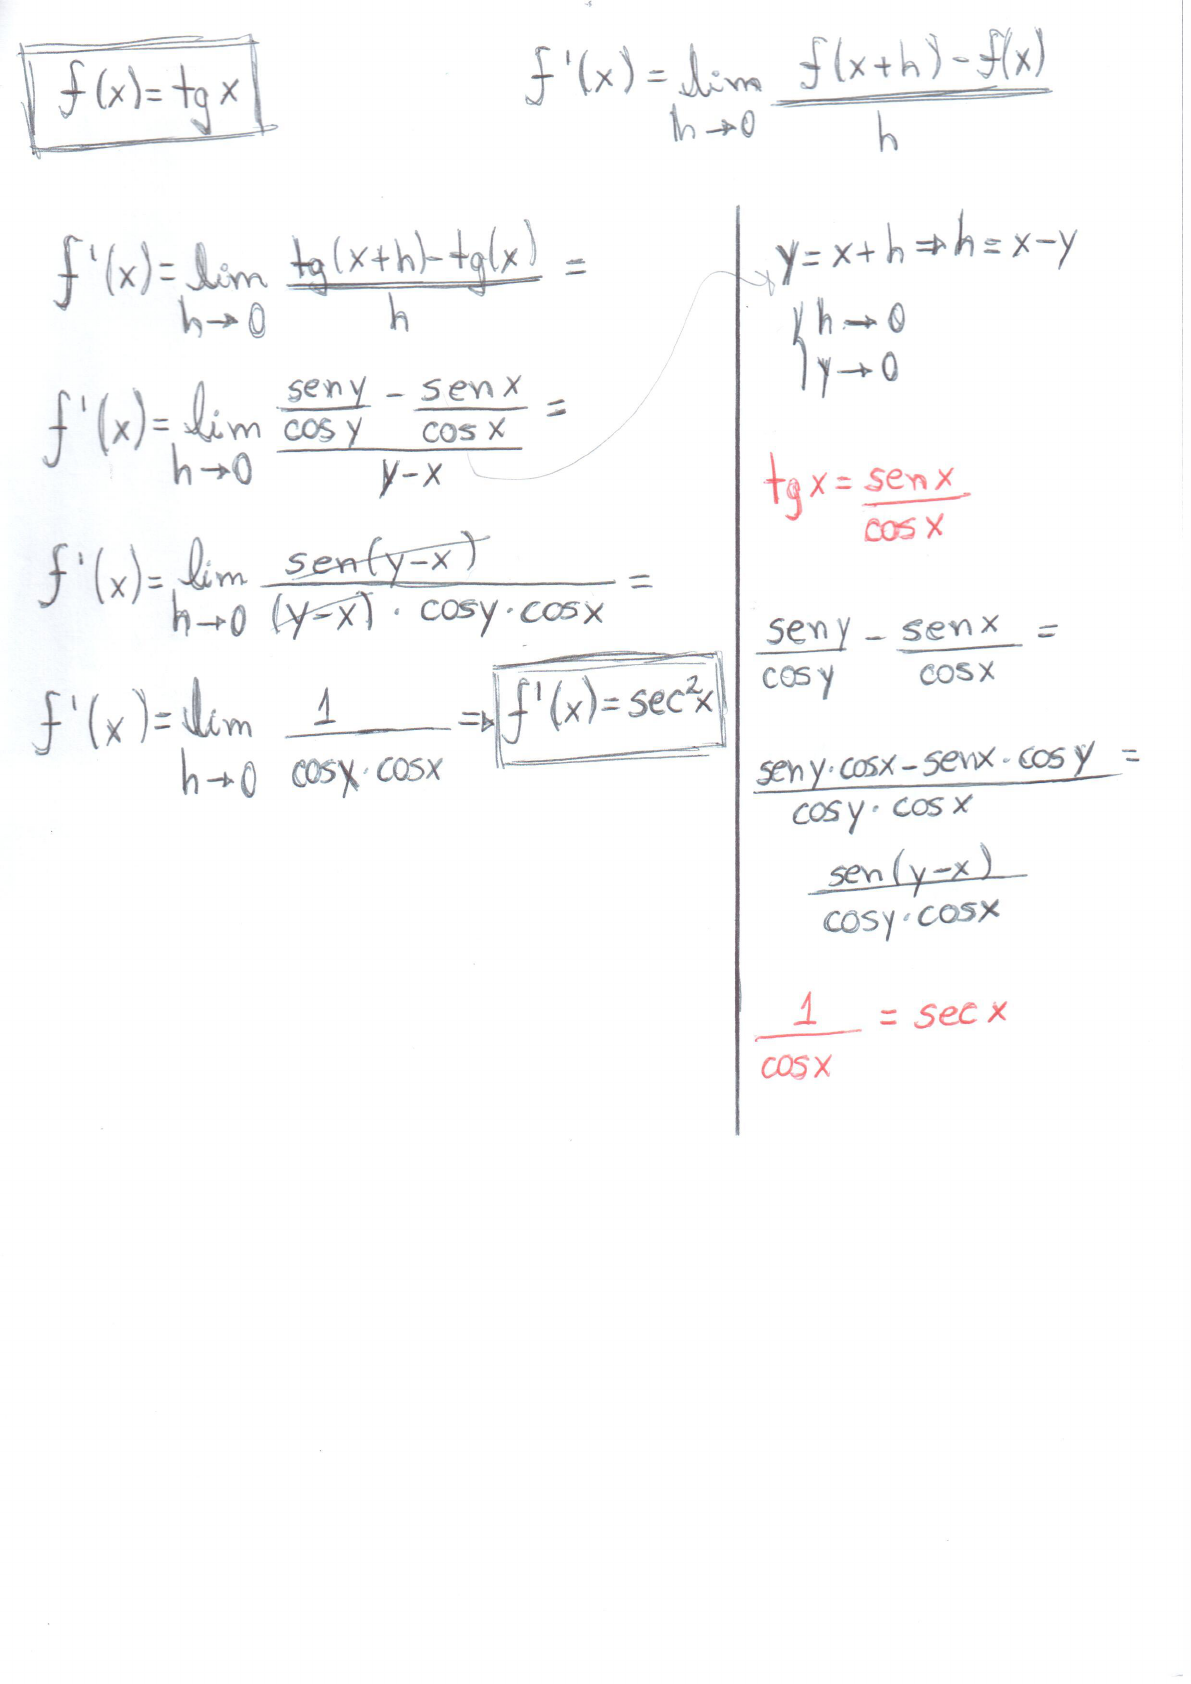 f(x)=tg x
f'(x)= lim h→0 f(x+h)-f(x) / h
f'(x)= lim h→0 tg(x+h)-tg(x) / h =
f'(x)= lim h→0 (sen y / cos y - sen x / cos x) / y-x =
f'(x)= lim h→0 sen(y-x) / (y-x) · cos y · cos x =
f'(x)= lim h→0 1 / cos x · cos x ⇒ f'(x)= sec²x
y=x+h⇒h=x-y
h→0
y→0
tg x = sen x / cos x
sen y / cos y - sen x / cos x =
sen y · cos x - sen x · cos y / cos y · cos x =
sen(y-x) / cos y · cos x
1 / cos x = sec x